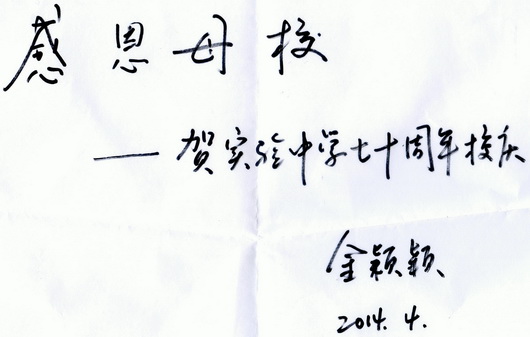 感恩母校
——贺实验中学七十周年校庆
金颖颖
2014.4.